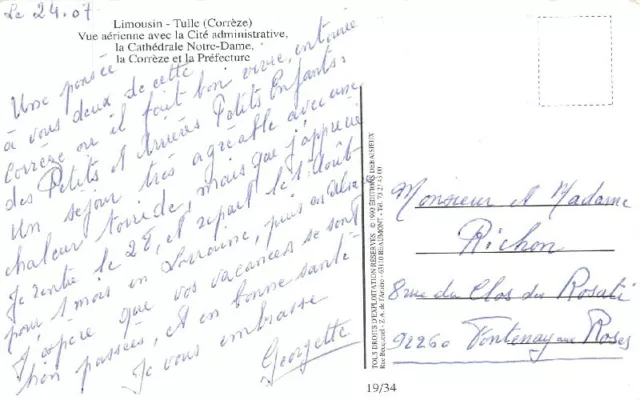 Le 24.07
Limousin - Tulle (Corrèze)
Vue aérienne avec la Cité administrative,
la Cathédrale Notre-Dame,
la Corrèze et la Préfecture
Une pensée
à vous deux de cette
Corrèze ou il fait bon vivre, entourée
des Petits et Arrières Petits Enfants.
Un séjour très agréable avec une
chaleur torride, mais que j'apprécie
Je rentre le 28, et repart le 1er Août
pour 1 mois en Lorraine, puis en Alsace
J'espère que vos vacances se sont
bien passées, et en bonne santé
Je vous embrasse
Georgette
TOUS DROITS D'EXPLOITATION RÉSERVÉS - © 1992 ÉDITIONS DEBAISIEUX
Z.A. de l'Artière - 63110 BEAUMONT - Tél. 73 27 45 00
Monsieur et Madame
Richon
8 rue du Clos des Rosati
92260 Fontenay aux Roses
19/34